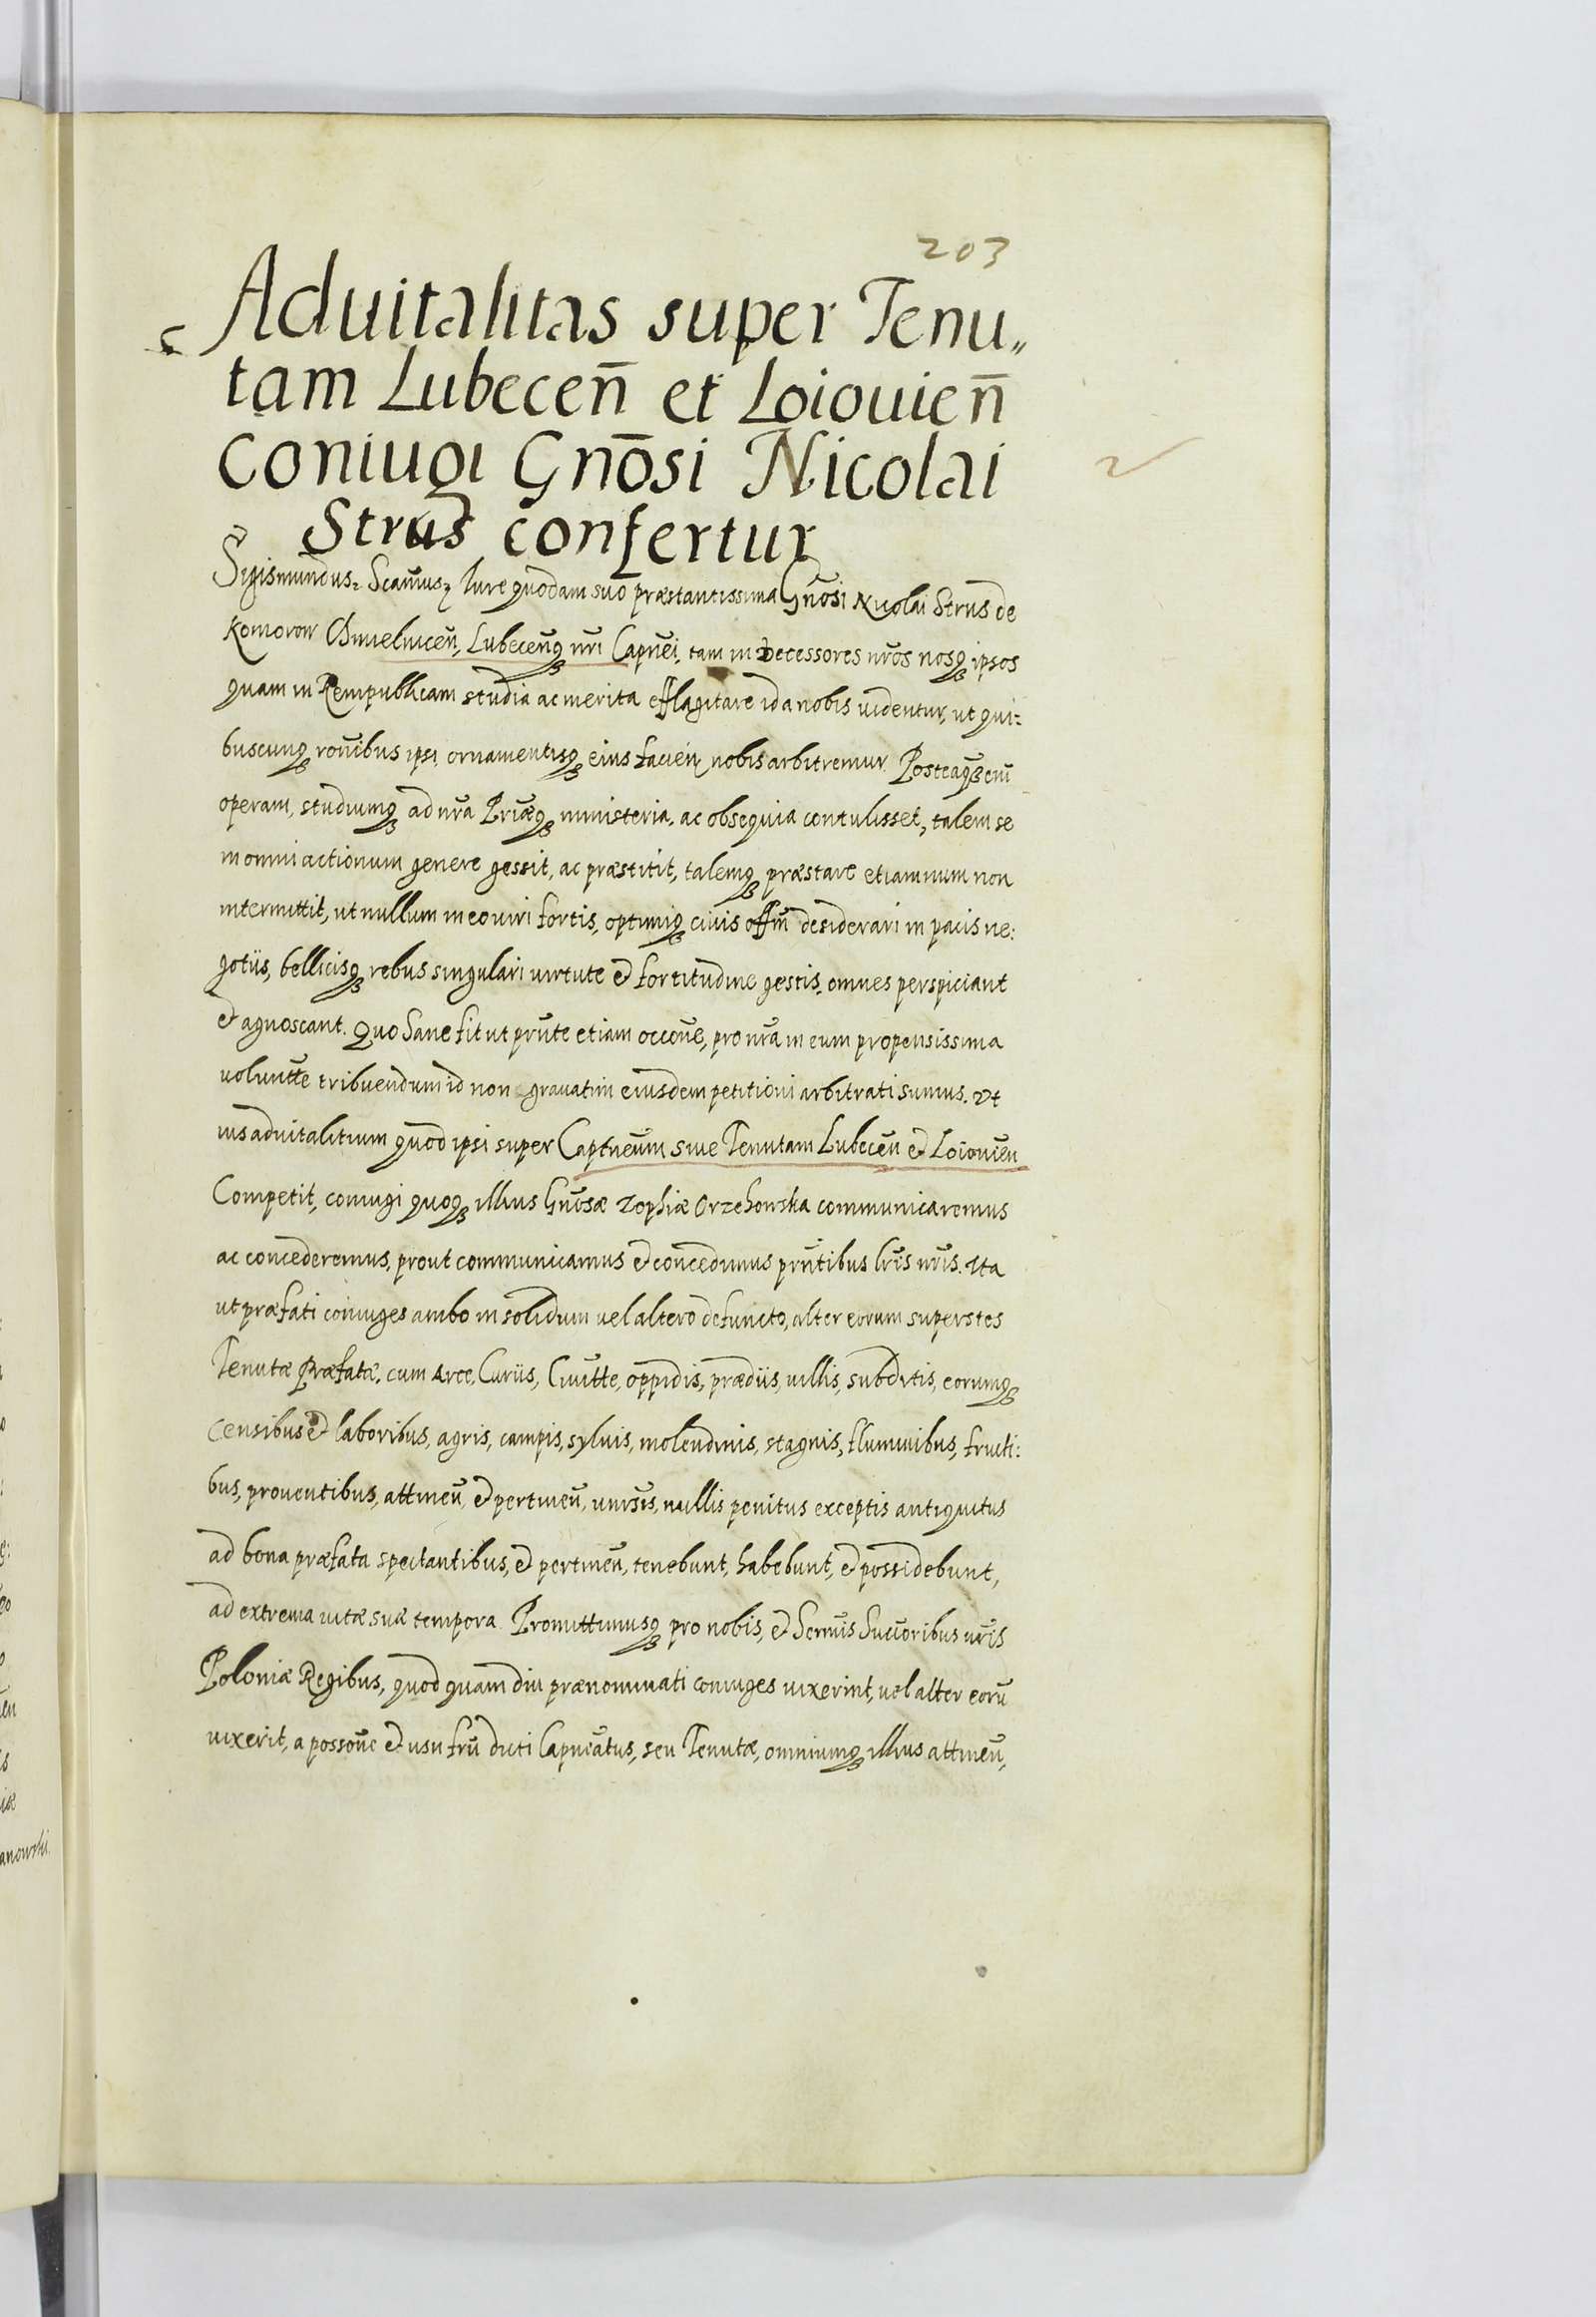 203
Aduitalitas super Tenu„
tam Lubeceñ et Loiouieñ
Coniugi Gnōsi Nicolai
Strus confertur
Sigismundus. Scamus. Iure quodam suo præstantissima Gnōsi Nicolai Strus de
Komorow Chmelniceñ, Lubeceñq nr̃i Capn̄ei, tam in Decessores nr̃os nosq ipsos
quam in Rempublicam studia ac merita efflagitare id a nobis uidentur, ut qui:
buscunq ron̄ibus ipsi ornamentisq eius facień nobis arbitremur. Posteaq̃
operam, studiumq ad nr̃a ministeria, ac obsequia contulisset, talem se
in omni actionum genere gessit, ac præstitit, talemq præstare etiamnum non
intermittit, ut nullum in eo uiri fortis, optimiq ciuis offm̄ desiderari in pacis ne:
gotijs, bellicisq rebus singulari uirtute et fortitudine gestis, omnes perspiciant
et agnoscant. Quo Sane fit ut prn̄te etiam occōne, pro nr̃a in eum propensissima
volun̄tte tribuendum id non grauatim eiusdem petitioni arbitrati sumus. Vt
ius aduitalitium quod ipsi super Captn̄eum siue Tenutam Lubeceñ et Loiouień
Competit, coniugi quoq illius Gnōsæ Zophiæ Orzehowska communicaremus
ac concederemus, prout communicamus et concedimus prn̄tibus lr̃is nr̃is. Ita
ut præfati coniuges ambo in solidum uel altero defuncto, alter eorum superstes
Tenutæ Præfatæ, cum Arce, Curijs, Ciuitte, oppidis, prædijs, uillis, subditis, eorumq
Censibus et laboribus, agris, campis, syluis, molendinis, stagnis, fluminibus, fructi:
bus, prouentibus, attineñ, et pertineñ, uniūsis, nullis penitus exceptis antiquitus
ad bona præfata spectantibus, et pertineñ, tenebunt, habebunt, et possidebunt,
ad extrema uitæ suæ tempora. Promittimusq pro nobis, et Sermīs Succoribus nr̃is
Poloniæ Regibus, quod quam diu prænominati coniuges uixerint, uel alter eorū
uixerit, a possōne et usu frū dicti Capn̄eatus, seu Tenutæ, omniumq illius attineñ,